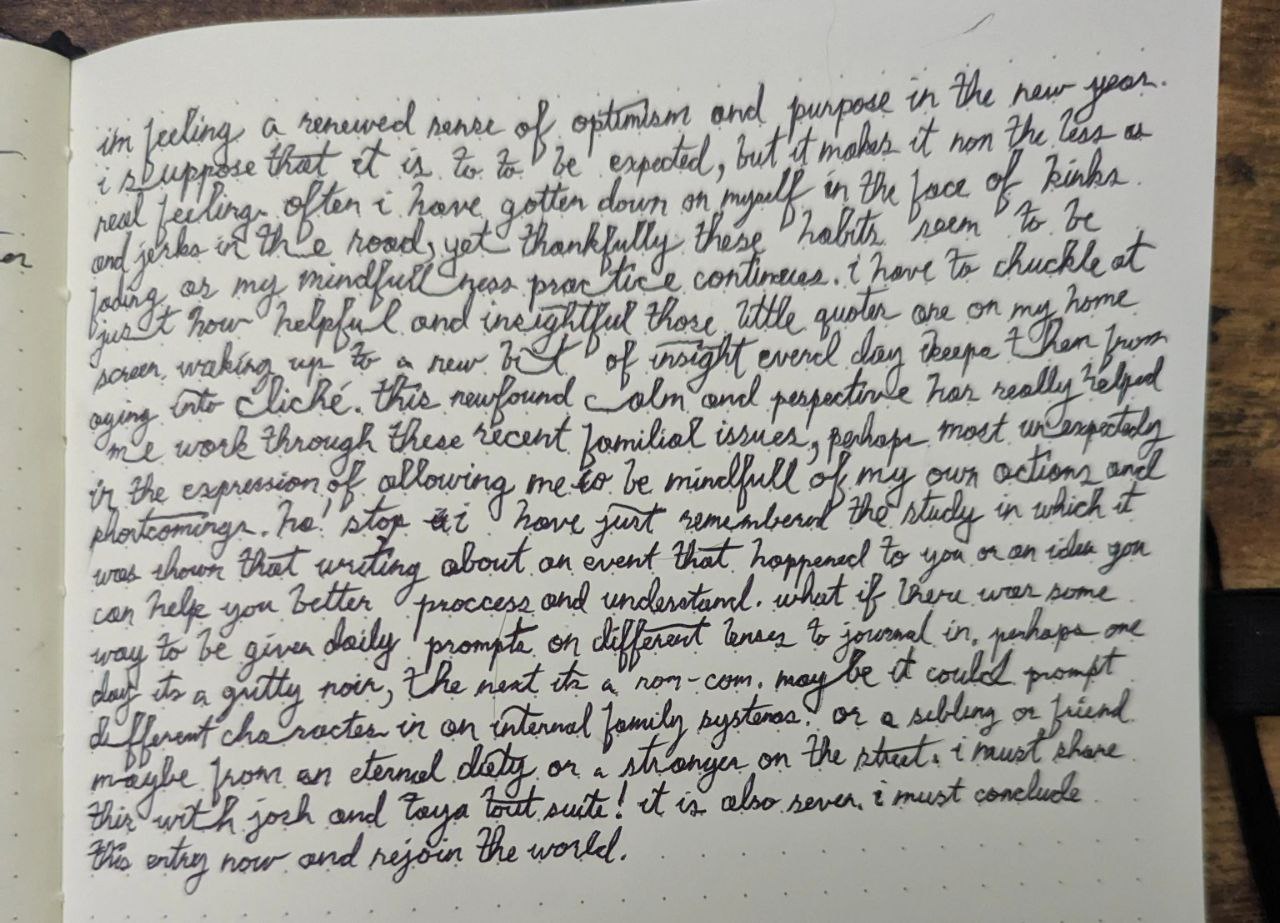 im feeling a renewed sense of optimism and purpose in the new year.
i suppose that it is to to be expected, but it makes it non the less as
real feeling. often i have gotten down on myself in the face of kinks
and jerks in the road, yet thankfully these habits seem to be
fading as my mindfullness practice continues. i have to chuckle at
just how helpful and insightful those little quotes are on my home
screen. waking up to a new bit of insight day keeps them from
aging into cliché. this newfound calm and perspective has really helped
me work through these recent familial issues, perhaps most unexpectedly
in the expression of allowing me to be mindfull of my own actions and
shortcomings. ha! stop i have just remembered the study in which it
was shown that writing about an event that happened to you or an idea you
can help you better proccess and understand. what if there was some
way to be given daily prompts on different lenses to journal in. perhaps one
day its a gritty noir, the next its a rom-com. maybe it could prompt
different charactes in an internal family systems. or a sibling or friend
maybe from an eternal diety or a stranger on the street. i must share
this with josh and taya tout suite! it is also seven. i must conclude
this entry now and rejoin the world.